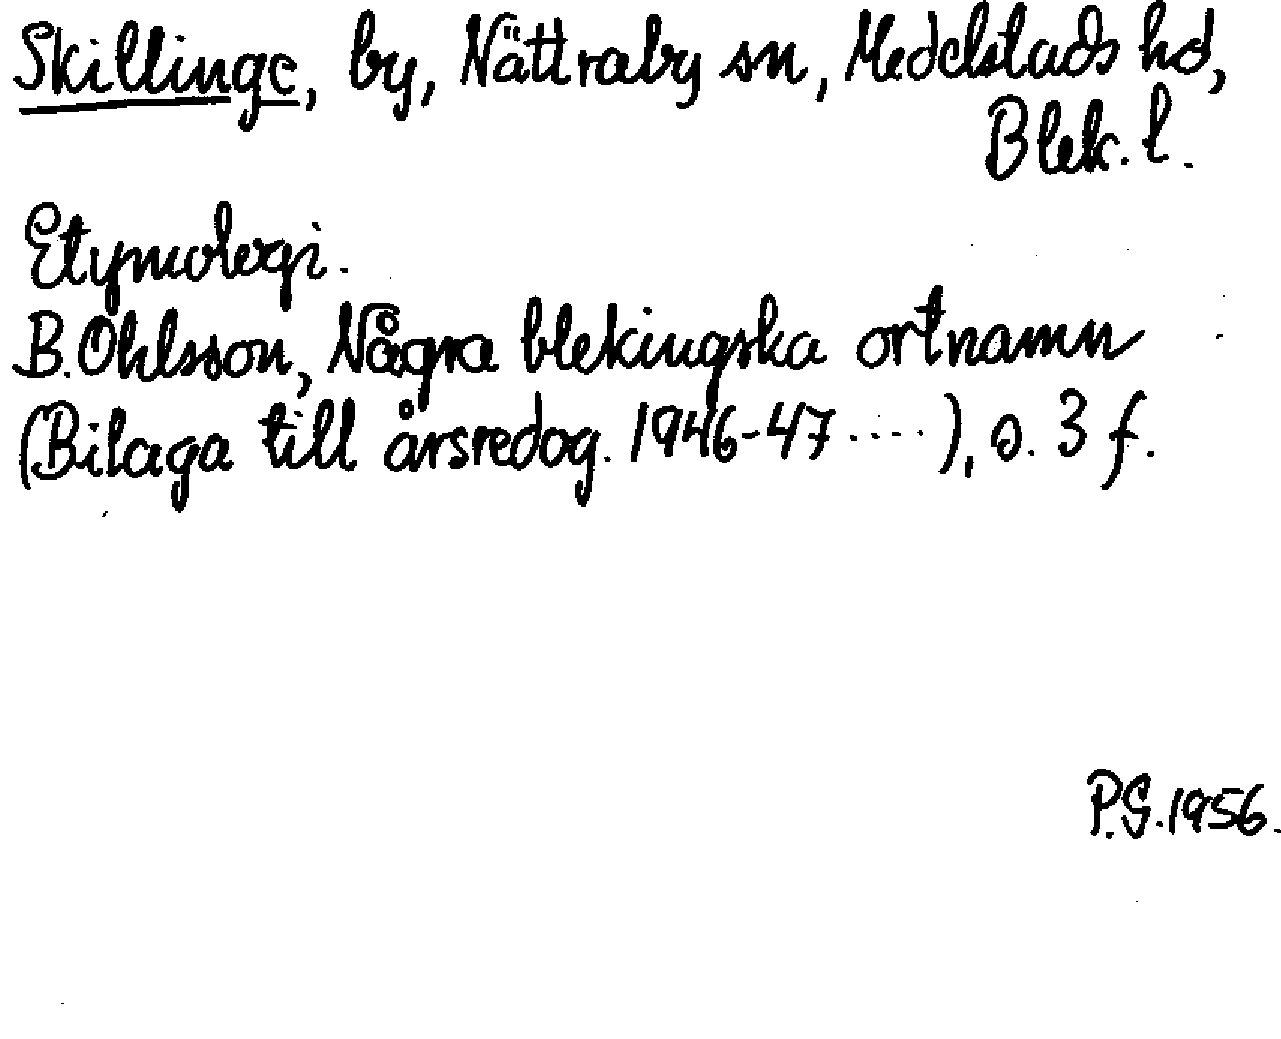 Skillinge, by, Nättraby sn, Medelstads hd,
Blek. l.
Etymologi.
B. Ohlsson, Några blekingska ortnamn
(Bilaga till årsredog. 1946-47 .....), s. 3 f.
P.G. 1956.